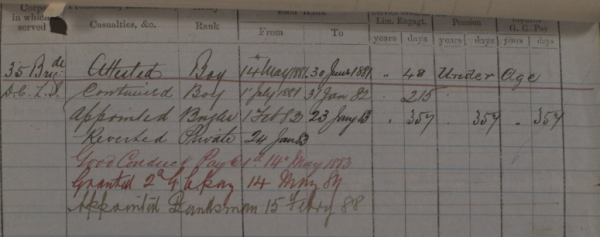 Corps in which served Casualties, &c. Army Rank Each Rank Lim. Engagt. Pension G. C. Pay
From To years days years days years days
35 Brigde Attested Boy 14 May 1881 30 June 1881 " 48 Under Age
D.C.L.I. Continued Boy 1 July 1881 31 Jan 82 . 215
Appointed Bugler 1 Feb 82 23 Jany 83 . 357 357 . 357
Reverted Private 24 Jan 83
Good Conduct Pay @ 1d 14 May 1883
Granted 2d G C pay 14 May 87
Appointed Bandsman 15 Febry 88